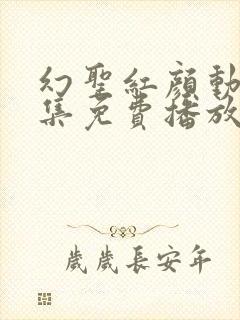 幻聖紅顔動
集免費播放
歲歲長安年